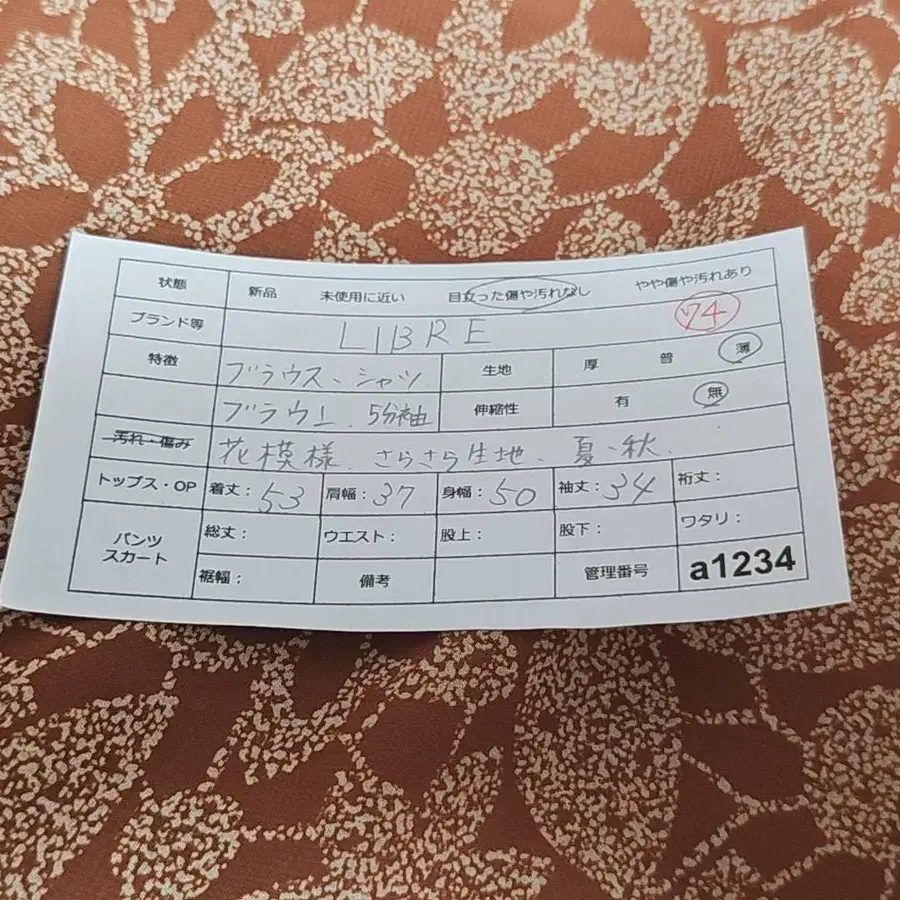 状態 新品 未使用に近い 目立った傷や汚れなし やや傷や汚れあり
ブランド等 LIBRE 74
特徴 ブラウス、シャツ 生地 厚 普 薄
ブラウエ、5分袖 伸縮性 有 無
汚れ・傷み 花模様、さらさら生地、夏・秋、
トップス・OP 着丈:53 肩幅:37 身幅:50 袖丈:34 裄丈:
パンツ スカート 総丈: ウエスト: 股上: 股下: ワタリ:
裾幅: 備考 管理番号 a1234